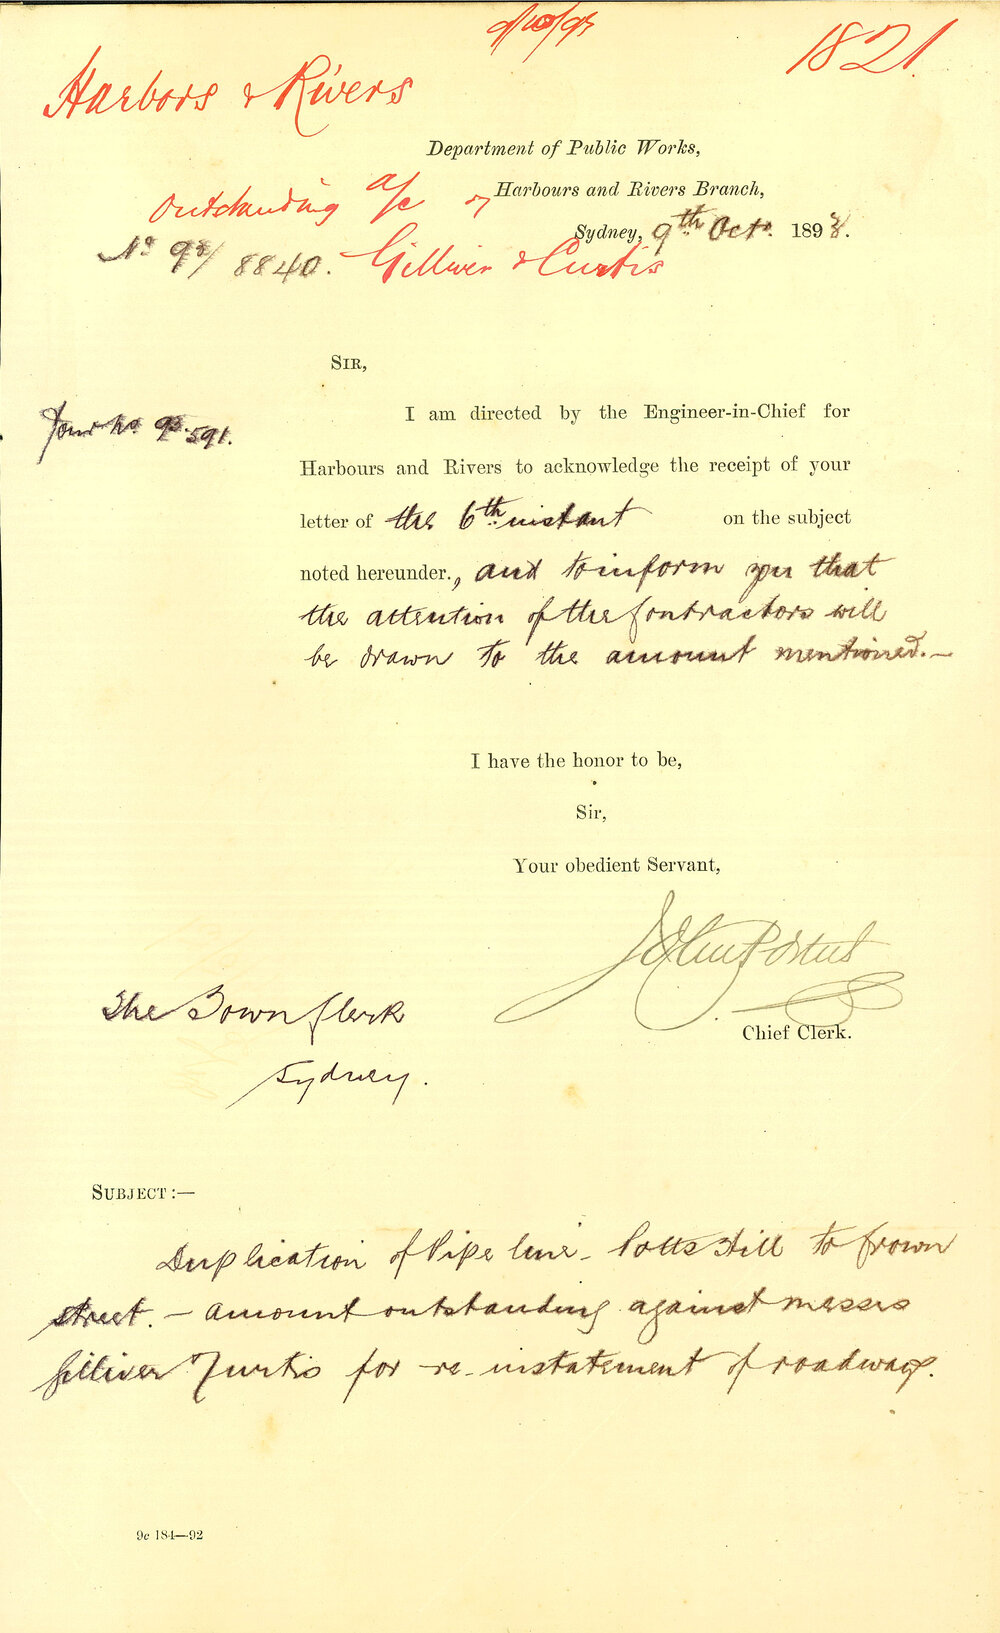 9/10/93
1821
Harbors & Rivers
Department of Public Works,
Harbours and Rivers Branch,
Outstanding a/c of
Sydney, 9th Oct. 1893.
No 93/8840. Gilliver & Curtis
SIR,
I am directed by the Engineer-in-Chief for
Your No 93.591.
Harbours and Rivers to acknowledge the receipt of your
letter of the 6th instant on the subject
noted hereunder., and to inform you that
the attention of the Contractors will
be drawn to the amount mentioned.—
I have the honor to be,
Sir,
Your obedient Servant,
John Portus
Chief Clerk.
The Town Clerk
Sydney.
SUBJECT:—
Duplication of Pipe line - Potts Hill to Crown
street. - amount outstanding against Messrs
Gilliver & Curtis for re-instatement of roadway.
9c 184—92